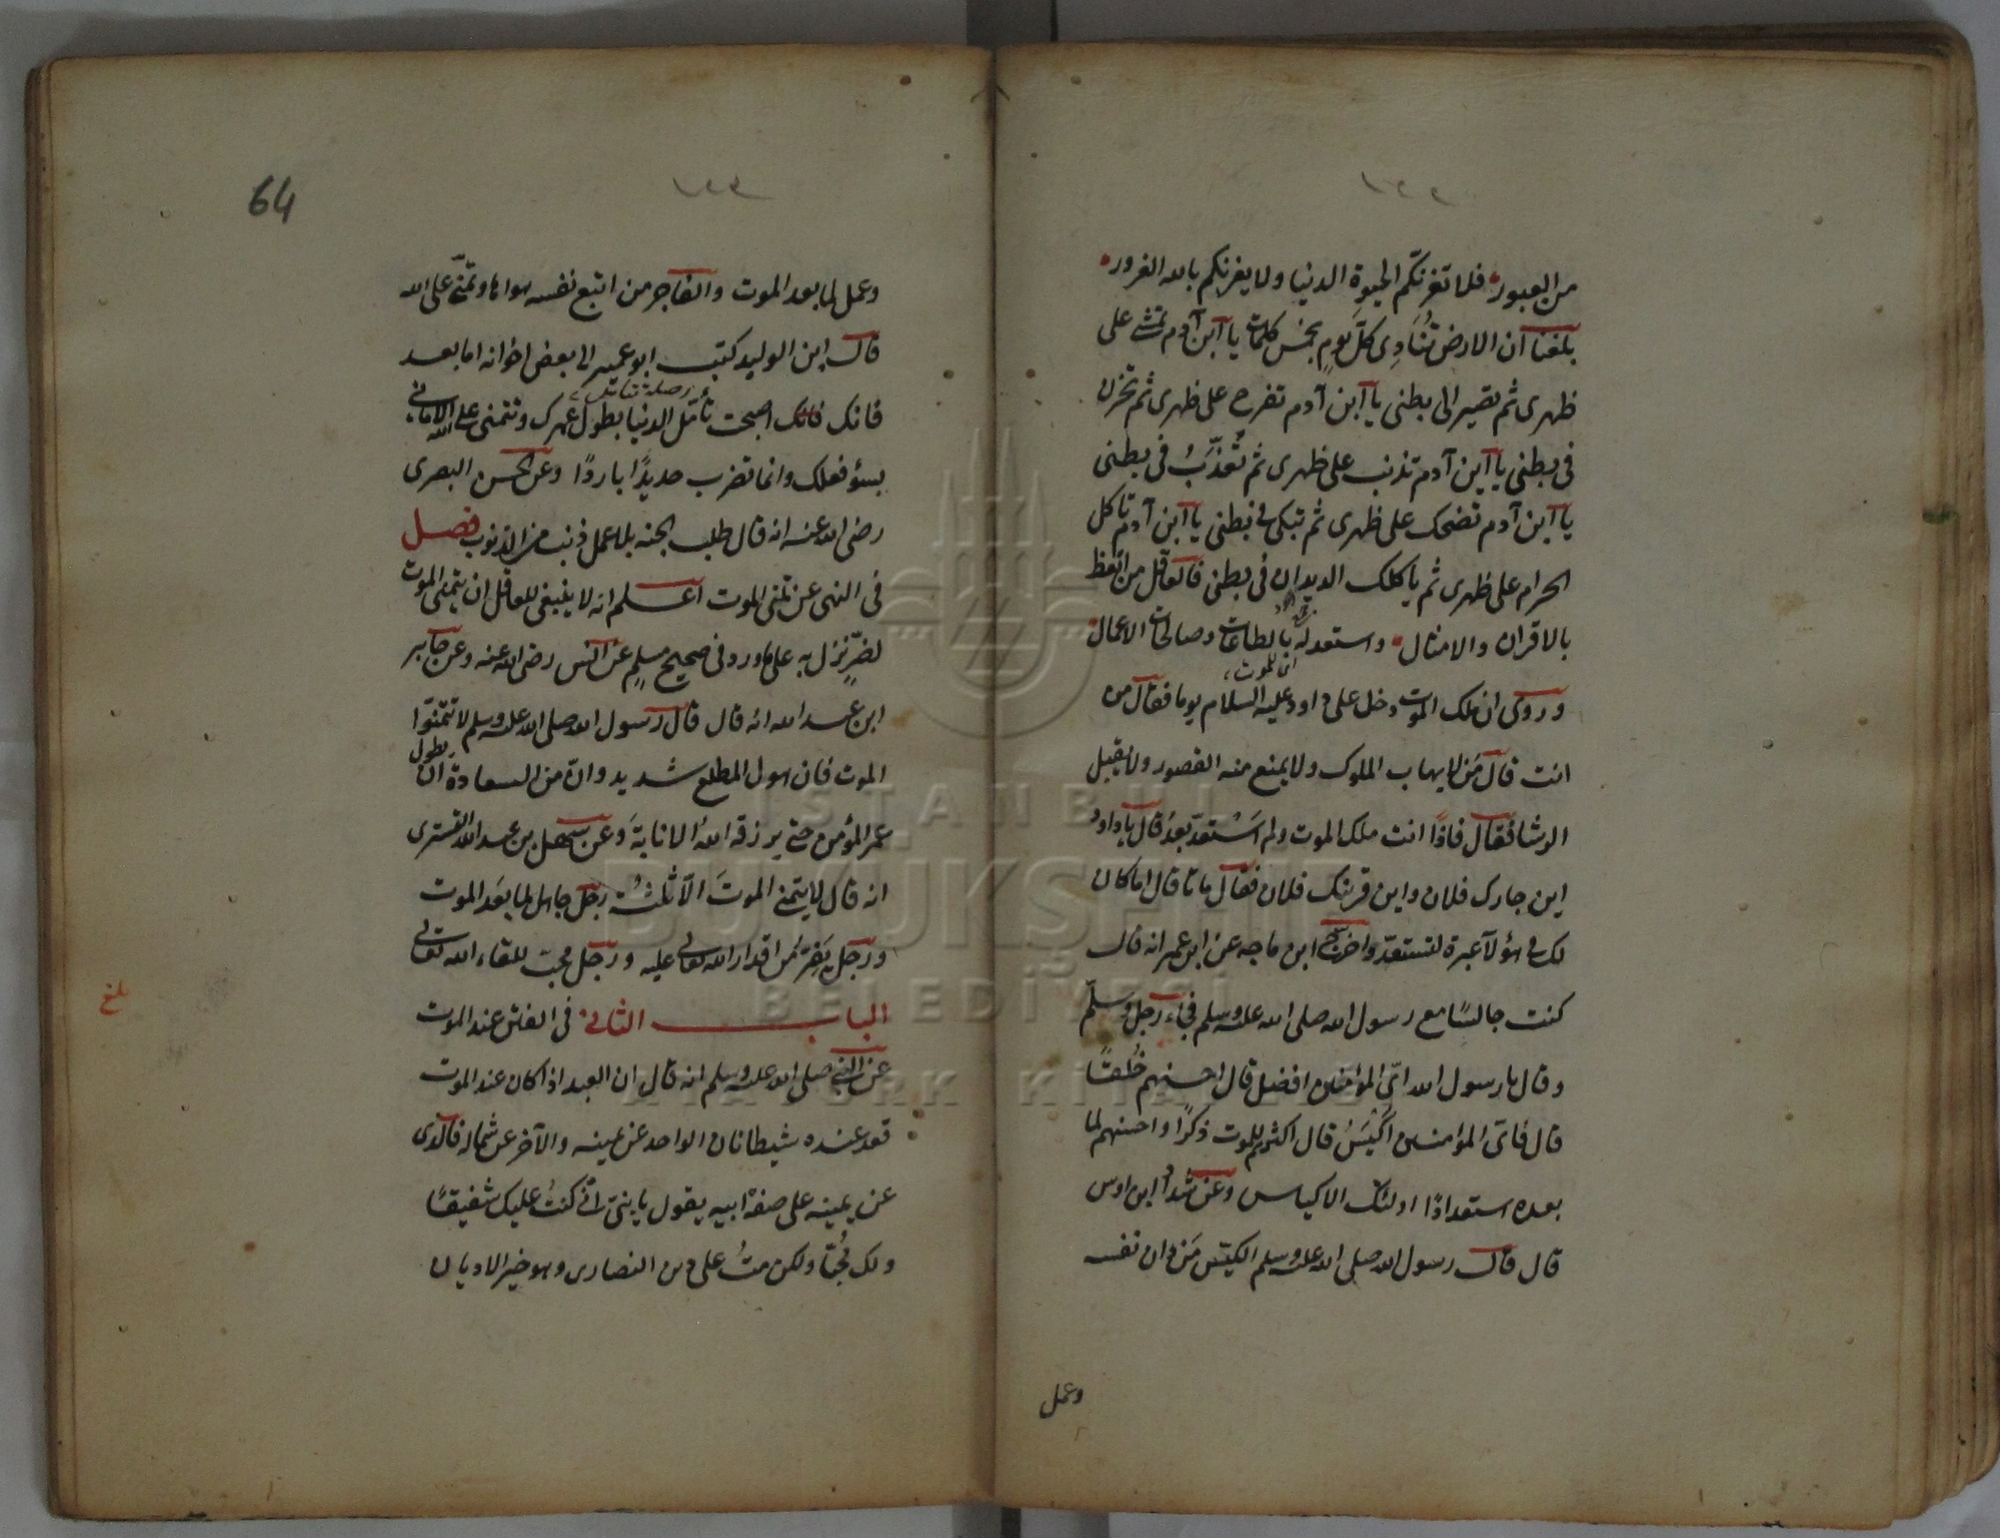 من العبور فلا تغرنّكم الحيوة الدنيا ولا يغرنكم بالله الغرور
بلغنا ان الارض تُنَادِى كلّ يومٍ بخمس كلمات يا ابن آدم تمشى على
ظهرى ثم تصير الى بطنى يا ابن آدم تفرح على ظهرى ثم تحزن
فى بطنى يا ابن آدم تذنب على ظهرى ثم تُعَذّبُ فى بطنى
يا ابن آدم تضحك على ظهرى ثم تبكى فى بطنى يا ابن آدم تاكل
الحرام على ظهرى ثم ياكلك الديدان فى بطنى فالعاقل من اتعظ
بالاقران والامثال واستعد له بالطاعات وصالحات الاعمال
اى للموت
وروى ان ملك الموت دخل على داود عليه السلام يوما فقال من
انت قال مَن لا يهاب الملوك ولا يمنع منه القصور ولا يقبل
الرشا فقال فاذًا انت ملك الموت ولم اَسْتعدّ بعدُ قال يا داود
اين جارك فلان واين قرينك فلان فقال ماتا قال اما كان
لك فى هؤلآ عبرة لتستعدّ واخرج ابن ماجه عن ابن عمر انه قال
كنت جالسًا مع رسول الله صلى الله عليه وسلم فجاء رجل وسلّم
وقال يا رسول الله اىّ المؤمنين افضل قال احسنهم خُلقًا
قال فاىّ المؤمنين اَكْيَسُ قال اكثرهم للموت ذكرًا واحسنهم لما
بعده استعدادًا اولئك الاكياس وعن شداد ابن اوس
قال قال رسول الله صلى الله عليه وسلم الكيّس مَن دان نفسه
وعمل
64
وعمل لما بعد الموت والفاجر من اتبع نفسه هواها وتمنّى على الله
قال ابن الوليد كتب ابو عمير الى بعض اخوانه اما بعد
فانك فانك اصبحت تأمّل الدنيا بطول عمرك وتتمنى على الله الامانى
بسؤ فعلك وانما تضرب حديدًا باردًا وعن الحسن البصرى
رضى الله عنه انه قال طلب الجنه بلا عمل ذنب من الذنوب فصل
فى النهى عن تمنى الموت اعلم انه لا ينبغى للعاقل ان يتمنى الموت
لضرٍّ نزل به على ما ورد فى صحيح مسلمٍ عن انس رضى الله عنه وعن جابر
ابن عبد الله انه قال قال رسول الله صلى الله عليه وسلم لا تتمنّوا
الموت فان هول المطلع شديد وانّ من السعادة ان يطول
عمر المؤمن حتى يرزقه اللهُ الانابةَ وعن سهل بن عبد الله التسترى
انه قال لا يتمنى الموتَ الاّ ثلثة رجل جاهل بما بعد الموت
ورجل يَفِرّ من اقدار الله تعالى عليه ورجل محبّ للقاء الله تعالى
الباب الثانى فى الفتن عند الموت
عن النبى صلى الله عليه وسلم انه قال ان العبد اذا كان عند الموت
قعد عنده شيطانان الواحد عن يمينه والآخر عن شماله فالذى
عن يمينه على صفة ابيه يقول يا بنىّ انّى كنتُ عليك شفيقًا
ولك مُحبّا ولكن متُ على دين النصارى وهو خير الاديان
بلغ
ISTANBUL
BÜYÜKŞEHİR
BELEDİYESİ
ATATÜRK KİTAPLIĞI